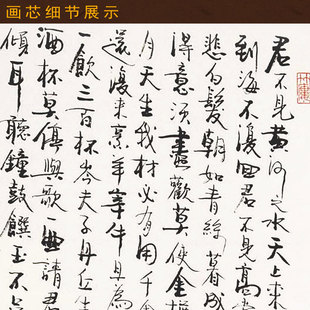 画芯细节展示
君不見黄河之水天上来
到海不復回君不見高
悲白髮朝如青絲暮成
得意須盡歡莫使金樽
月天生我材必有用千金
還復来烹羊宰牛且為
一飲三百杯岑夫子丹丘生
酒杯莫停與歌一曲請君
傾耳聽鐘鼓饌玉不足